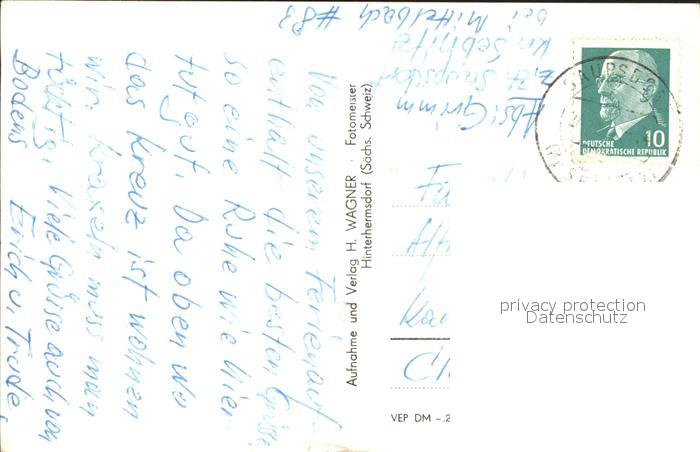 Abs: Grimm
z.Zt. Saupsdorf
Kr. Sebnitz
bei Mittelbach #83
Von unserem Ferienauf-
enthalt die besten Grüsse
so eine Ruhe wie hier
tut gut. Da oben wo
das Kreuz ist wohnen
wir. kraxeln muss man
tüchtig. Viele Grüsse auch von
Bodens Erich u. Trude.
Aufnahme und Verlag H. WAGNER · Fotomeister
Hinterhermsdorf (Sächs. Schweiz)
10
DEUTSCHE
DEMOKRATISCHE REPUBLIK
SAUPSDORF
privacy protection
Datenschutz
VEP DM -.2